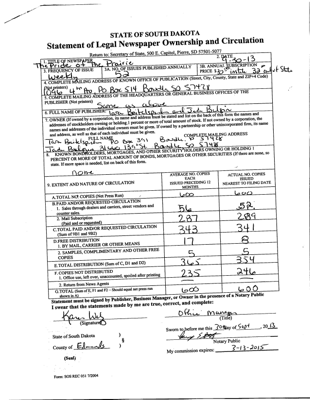 STATE OF SOUTH DAKOTA
Statement of Legal Newspaper Ownership and Circulation
Return to: Secretary of State, 500 E. Capitol, Pierre, SD 57501-5077
1. TITLE OF NEWSPAPER
The Pride of The Prairie
2. DATE
9-30-13
3. FREQUENCY OF ISSUE
Weekly
3A. NO. OF ISSUES PUBLISHED ANNUALLY
52
3B. ANNUAL SUBSCRIPTION
PRICE
4. COMPLETE MAILING ADDRESS OF KNOWN OFFICE OF PUBLICATION (Street, City, County, State and ZIP+4 Code)
(Not printers)
PO Box 514
5. COMPLETE MAILING ADDRESS OF THE HEADQUARTERS OR GENERAL BUSINESS OFFICES OF THE
PUBLISHER (Not printers)
Same as above
6. FULL NAME OF PUBLISHER:
7. OWNER (If owned by a corporation, its name and address must be stated and
addresses of stockholders owning or holding 1 percent or more of total amount of stock. If not owned by a corporation, the
names and addresses of the individual owners must be given. If owned by a partnership or other unincorporated firm, its name
and address, as well as that of each individual must be given.
FULL NAME
COMPLETE MAILING ADDRESS
8. KNOWN BONDHOLDERS, MORTGAGES, AND OTHER SECURITY HOLDERS OWNING OR HOLDING 1
PERCENT OR MORE OF TOTAL AMOUNT OF BONDS, MORTGAGES OR OTHER SECURITIES (If there are none, so
state. If more space is needed, list on back of this form.
none
9. EXTENT AND NATURE OF CIRCULATION
AVERAGE NO. COPIES
EACH
ISSUES PRECEDING 12
MONTHS
ACTUAL NO. COPIES
ISSUED
NEAREST TO FILING DATE
A. TOTAL NO. COPIES (Net Press Run) 600 600
B. PAID AND/OR REQUESTED CIRCULATION
1. Sales through dealers and carriers, street vendors and
counter sales. 56 52
2. Mail Subscription
(Paid and or requested) 287 289
C. TOTAL PAID AND/OR REQUESTED CIRCULATION
(Sum of 9B1 and 9B2) 343 341
D. FREE DISTRIBUTION
1. BY MAIL, CARRIER OR OTHER MEANS 17 8
2. SAMPLES, COMPLIMENTARY AND OTHER FREE
COPIES 5 5
E. TOTAL DISTRIBUTION (Sum of C, D1 and D2) 365 354
F. COPIES NOT DISTRIBUTED
1. Office use, left over, unaccounted, spoiled after printing 235 246
2. Return from News Agents
G. TOTAL (Sum of E, F1 and F2 - Should equal net press run
shown in A) 600 600
Statement must be signed by Publisher, Business Manager, or Owner in the presence of a Notary Public
I swear that the statements made by me are true, correct, and complete:
(Signature)
Office Manager
(Title)
State of South Dakota )
) §
County of Edmunds )
Sworn to before me this 30 day of Sept, 2013
Notary Public
(Seal)
My commission expires: 7-13-2015
Form: SOS REC 051 7/2004